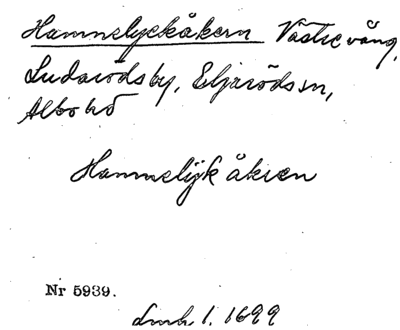 Hammelyckåkern Västre vång,
Ludarödsby, Eljarödssn,
Albo hd
Hammelijk åkren
Nr 5939.
Lmh 1. 1699